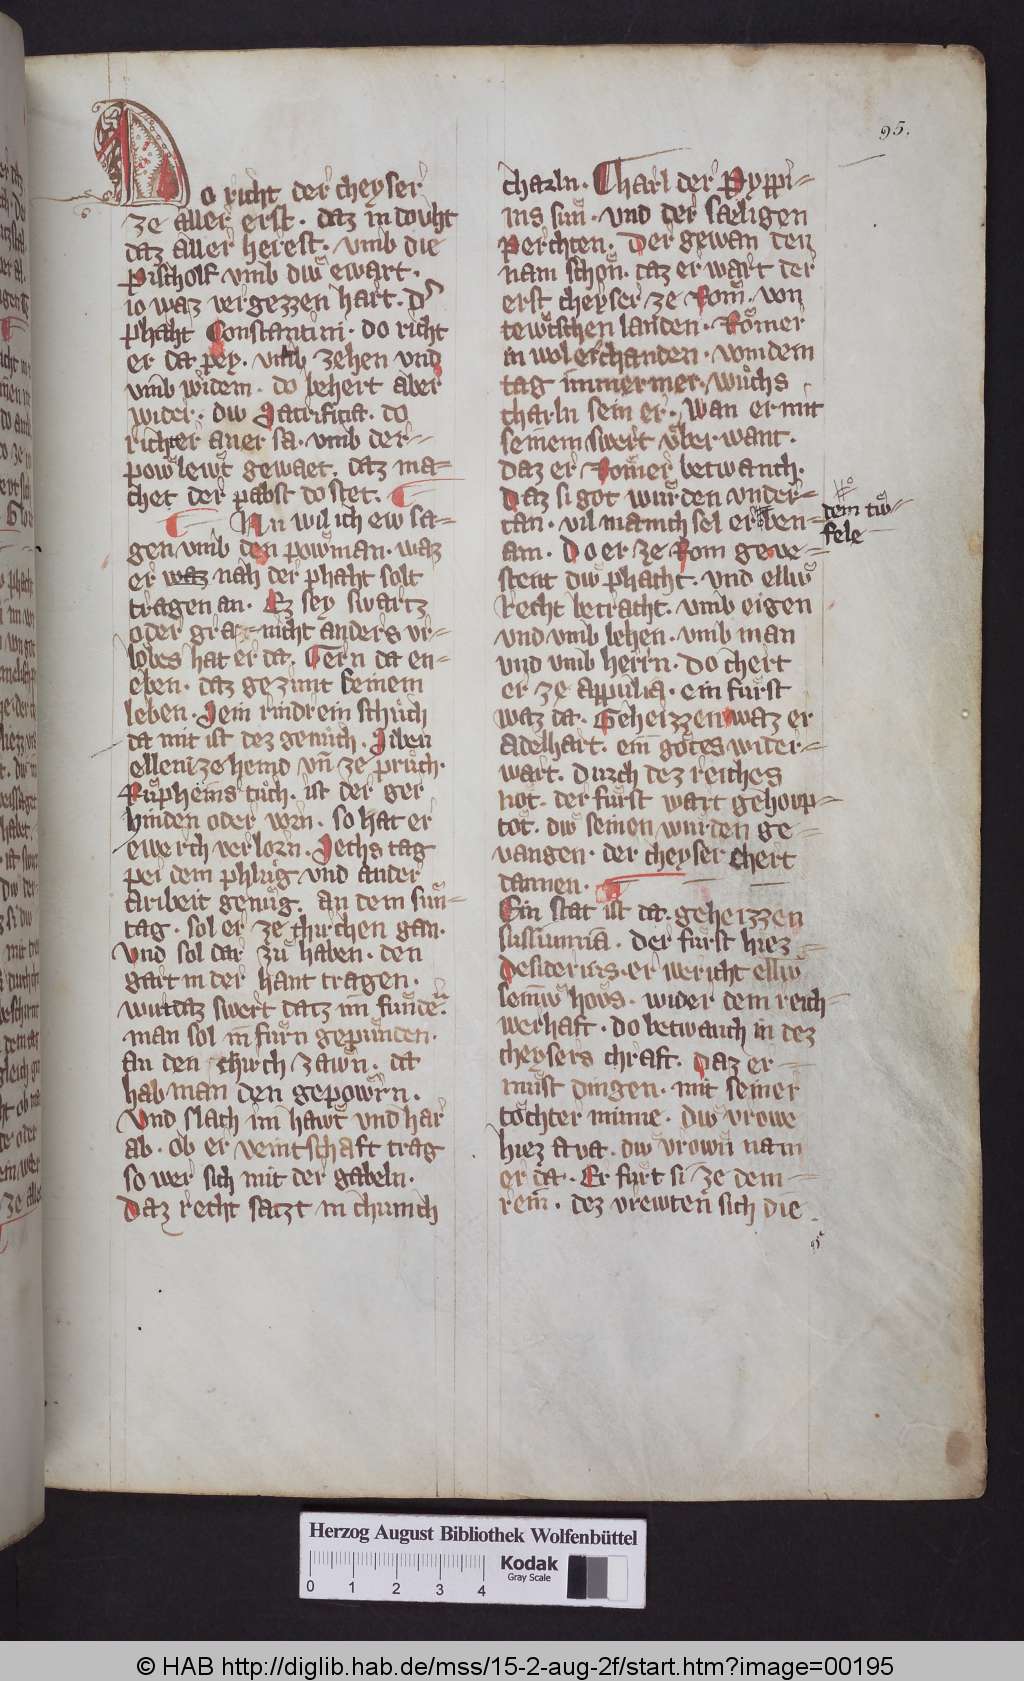 95.
Do richt der cheyser
ze aller erst · daz in dovht
daz aller herest · vmb die
Pischolf vmb diw ewart ·
io waz vergezzen hart · d͛
phaht Constantini · do richt
er da pey · vmb zehen vnd
vmb widem · do behert aber
wider · diw Sacrificia · do
richter auer sa · vmb der-
powͤlewt gewaet · daz ma-
chet der pabst do stet ·
Nu wil ich ew sa-
gen vmb den powman · waz
er waz nah der phaht solt
tragen an · Ez sey swartz
oder gra · nicht anders vr-
lobes hat er da · Gern da en-
eben · daz gezimt seinem
leben · Sein rindrein schuͦch
da mit ist dez genuͦch · Siben
ellen ze hemd vn̄ ze pruͦch ·
Ruͦpheins tuͦch · ist der ger
hinden oder vorn · so hat er
ewerch verlorn · Sechs tag
pei dem phluͦg vnd ander
aribeit genuͦg · An dem sun-
tag · sol er ze chirchen gan ·
Vnd sol dar zuͦ haben · den
gart in der hant tragen ·
wirt daz swert datz im funden ·
man sol in fuͤrn gepunden ·
an den chirch zawn · da
hab man den gepowrn ·
Vnd slach im hawt vnd har
ab · ob er veintschaft trag
so wer sich mit der gabeln ·
Daz recht satzt in chunich
charln · Charl der Pyppi-
ins sun · vnd der saeligen
Perchten · Der gewan den
nam schon · daz er wart der
erst cheyser ze Rom · von
tewtschen landen · Romer
in wol erchanden · von dem
tag immer mer · wuͦchs
charln sein er · Wan er mit
seinem swert vͤber want ·
daz er Romer betwanch ·
Daz si got wurden vnder-
tan · vil manich sel er ben-
am · Do er ze Rom geve-
stent diw phacht · vnd elliw
recht betracht · vmb eigen
vnd vmb lehen · vmb man
vnd vmb herrn · Do chert
er ze appulia · ein fuͤrst
waz da · Geheizzen waz er
Adelhart · ein gotes wider-
wart · durch dez reiches
not · der fuͤrst wart gehovp-
tot · diw seinen wurden ge-
vangen · der cheyser chert
dannen ·
Ein stat ist da · geheizzen
sussunnia · der fuͤrst hiez
Desiderius · er wericht elliw
seiniw hovs · wider dem reich-
werhaft · do betwanch in dez
cheysers chraft · Daz er-
muͦst dingen · mit seiner
tochter minne · diw vrowe
hiez Ava · diw vrown nam
er da · Er fuͤrt si ze dem-
rein · dez vrewten sich die
dem tiw-
fele
Herzog August Bibliothek Wolfenbüttel
0 1 2 3 4
Kodak
Gray Scale
© HAB http://diglib.hab.de/mss/15-2-aug-2f/start.htm?image=00195